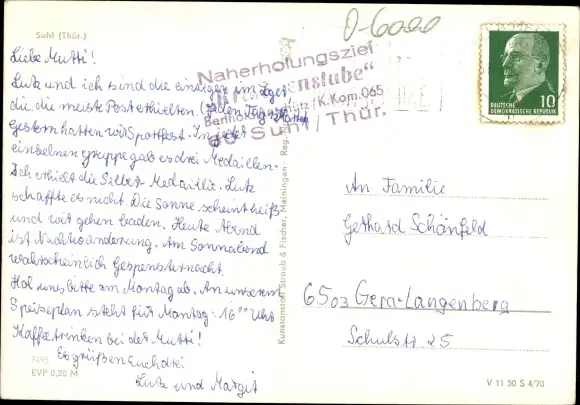 Suhl (Thür.)
Liebe Mutti!
Lutz und ich sind die einzigen im Lager
die die meiste Post erhielten (jeden Tag 3 Karten
Gestern hatten wir Sportfest. In jeder
einzelnen Gruppe gab es drei Medaillen.
Ich erhielt die Silber Medaillie. Lutz
schaffte es nicht. Die Sonne scheint heiß
und wir gehen baden. Heute Abend
ist Nachtwanderung. Am Sonnabend
wahrscheinlich Gespensternacht.
Hol uns bitte am Montag ab. An unserem
Speiseplan steht für Montag: 16⁰⁰ Uhr
Kaffeetrinken bei der Mutti!
Es grüßen Euch drei
Lutz und Margit
7495
EVP 0,20 M
Kunstanstalt Straub & Fischer, Meiningen - Reg.
0-6000
Naherholungsziel
K.Kom.065
60 Suhl/Thür.
10
DEUTSCHE
DEMOKRATISCHE REPUBLIK
An Familie
Gerhard Schönfeld
6503 Gera-Langenberg
Schulstr 25
V 11 50 S 4/70